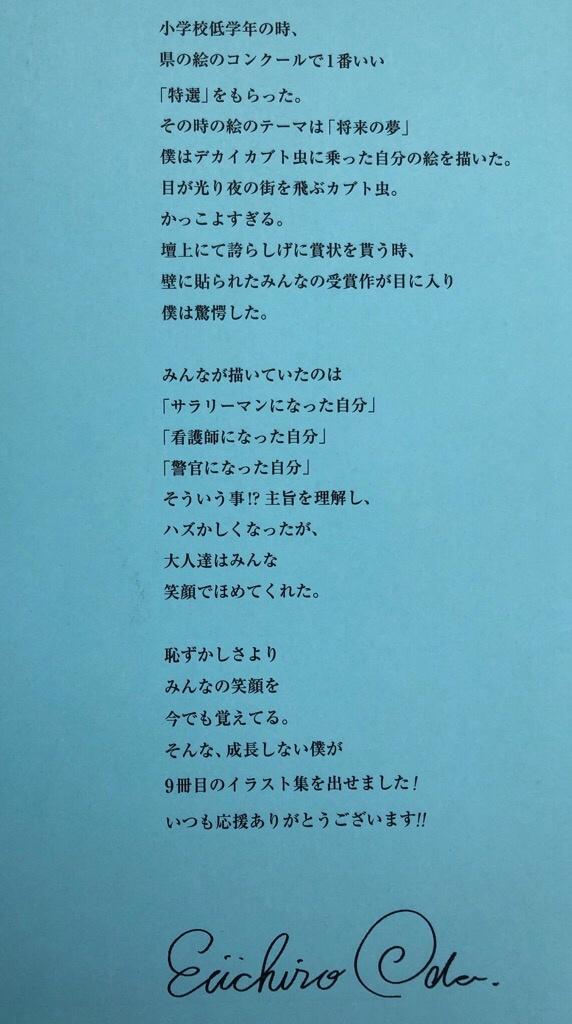 小学校低学年の時、
県の絵のコンクールで1番いい
「特選」をもらった。
その時の絵のテーマは「将来の夢」
僕はデカイカブト虫に乗った自分の絵を描いた。
目が光り夜の街を飛ぶカブト虫。
かっこよすぎる。
壇上にて誇らしげに賞状を貰う時、
壁に貼られたみんなの受賞作が目に入り
僕は驚愕した。
みんなが描いていたのは
「サラリーマンになった自分」
「看護師になった自分」
「警官になった自分」
そういう事!?主旨を理解し、
ハズかしくなったが、
大人達はみんな
笑顔でほめてくれた。
恥ずかしさより
みんなの笑顔を
今でも覚えてる。
そんな、成長しない僕が
9冊目のイラスト集を出せました!
いつも応援ありがとうございます!!
Eiichiro Oda.